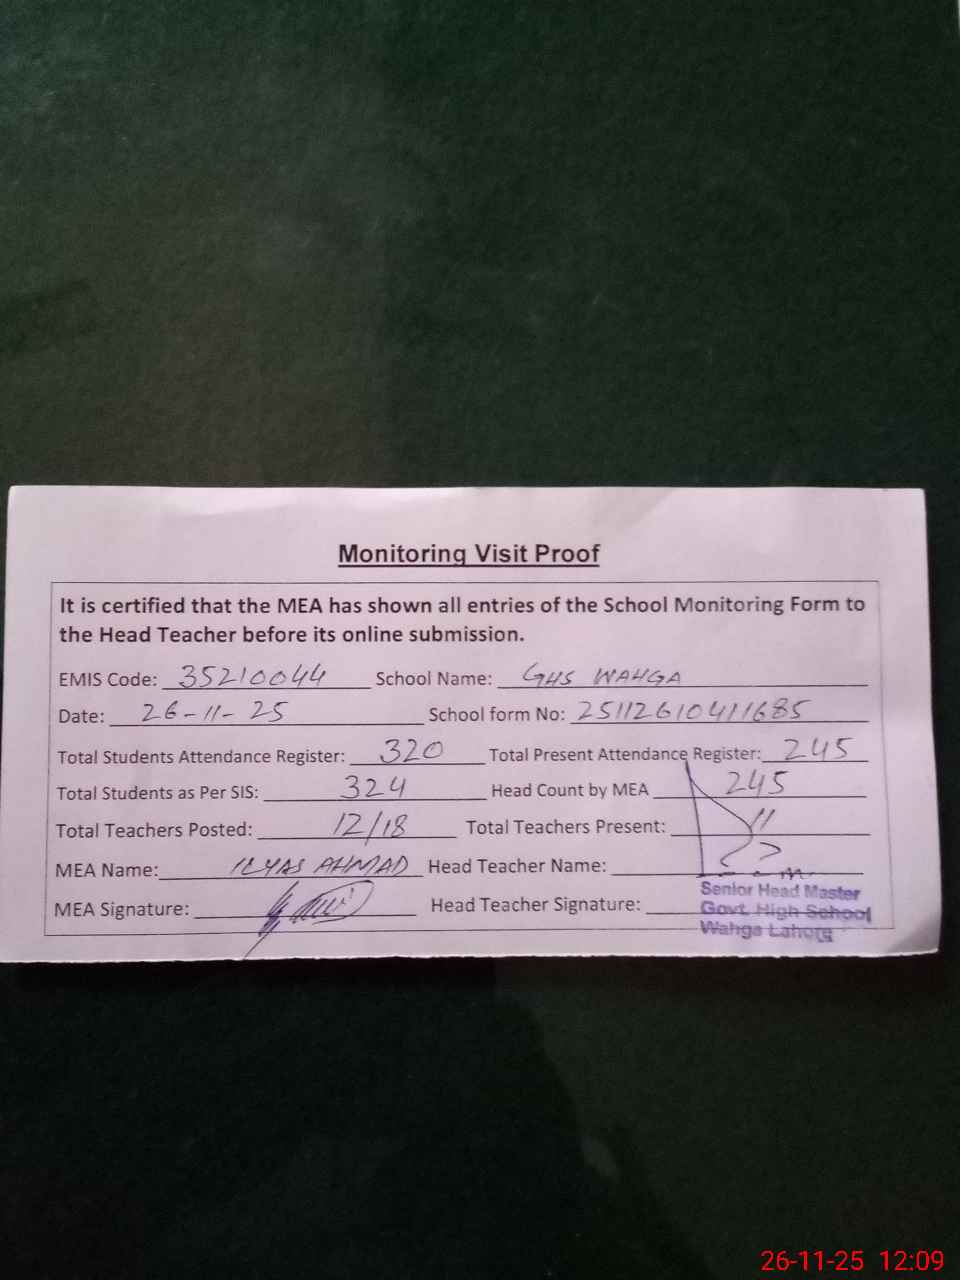 Monitoring Visit Proof
It is certified that the MEA has shown all entries of the School Monitoring Form to
the Head Teacher before its online submission.
EMIS Code: 35210044 School Name: GHS WAHGA
Date: 26-11-25 School form No: 25112610411685
Total Students Attendance Register: 320 Total Present Attendance Register: 245
Total Students as Per SIS: 324 Head Count by MEA 245
Total Teachers Posted: 12/18 Total Teachers Present: 11
MEA Name: ILYAS AHMAD Head Teacher Name:
MEA Signature: Head Teacher Signature:
Senior Head Master
Govt. High School
Wahga Lahore
26-11-25 12:09